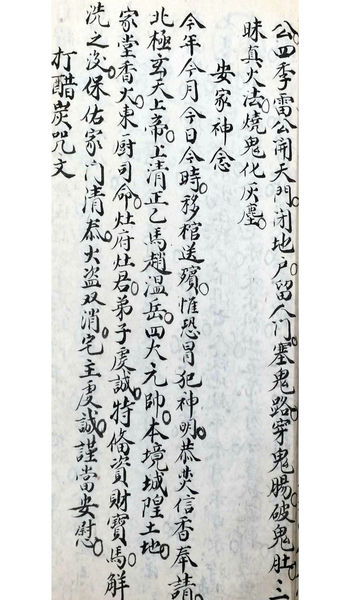 公四季雷公開天門。闭地户。留人门。塞鬼路。穿鬼腸。破鬼肚。三
昧真火法。燒鬼化灰塵。
安家神念
今年今月今日今時。移棺送殯。惟恐冒犯神明。恭焚信香奉請。
北極玄天上帝。上清正乙馬趙温岳四大元帥。本境城隍土地。
家堂香火。東厨司命。灶府灶君。弟子虔誠。特俻資財寶馬。解
洗之没。保佑家门清泰。火盗双消。宅主虔誠。謹當安慰。
打醋炭咒文